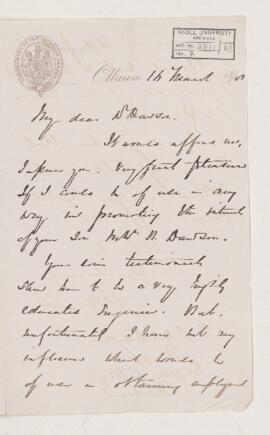 McGILL UNIVERSITY
ARCHIVES
ACC. NO. 2211
REF. 7
Ottawa 14 March
My dear Dr Dawson.
It would afford me,
I assure you, very great pleasure
If I could be of use in any
way in promoting the interests
of your Son Mr Wm B. Dawson.
Your own testimonials
show him to be a very highly
educated Engineer. But,
unfortunately I have not any
influence which would be
of use in obtaining employment